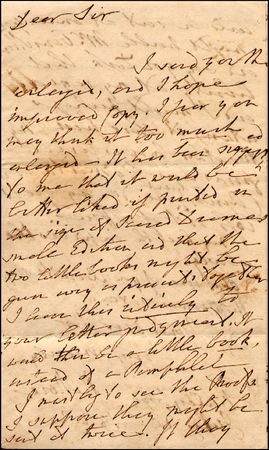 Dear Sir
I send you the
enlarged, and I hope
improved Copy. I fear you
may think it too much
enlarged. It has been suggested
to me that it would be
better liked if printed in
the size of Sacred Dramas
small Edition and that the
two little books might be
given away as presents together
I leave this entirely to
your better judgment. It
would then be a little book,
instead of a Pamphlet
I must beg to see the Proofs
I suppose they might be
sent twice. If they